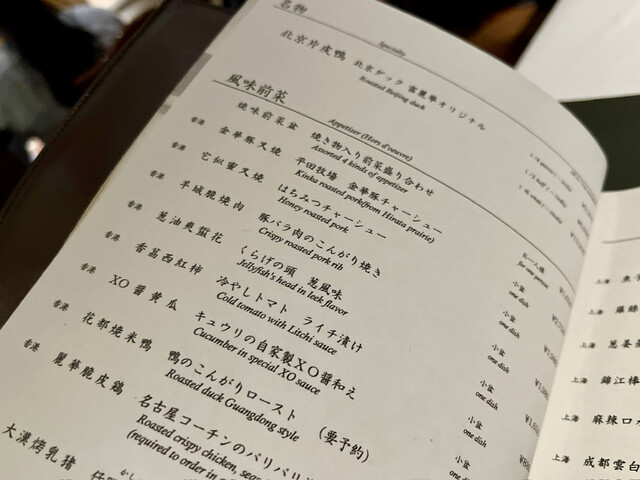 名物
Specialty
北京片皮鴨 北京ダック 富麗華オリジナル
Roasted Beijing duck
風味前菜
Appetizer (Hors d'oeuvre)
燒味前菜盆 焼き物入り前菜盛り合わせ
Assorted 4 kinds of appetizer
お一人様
for one person
香港 金華豚叉燒 平田牧場 金華豚チャーシュー
Kinka roasted pork(from Hirata prairie)
小盆
one dish
香港 它似蜜叉燒 はちみつチャーシュー
Honey roasted pork
小盆
one dish
香港 羊城脆燒肉 豚バラ肉のこんがり焼き
Crispy roasted pork rib
小盆
one dish
香港 葱油爽蜇花 くらげの頭 葱風味
Jellyfish's head in leek flavor
小盆
one dish
香港 香茘西紅柿 冷やしトマト ライチ漬け
Cold tomato with Litchi sauce
小盆
one dish
香港 XO醤黄瓜 キュウリの自家製XO醤和え
Cucumber in special XO sauce
小盆
one dish
香港 花都燒米鴨 鴨のこんがりロースト
Roasted duck Guangdong style
小盆
one dish
香港 麗華脆皮鶏 名古屋コーチンのパリパリ (要予約)
Roasted crispy chicken,
(required to order in
大漢烤乳猪
上海
上海
上海 葱姜
上海 錦江棒
上海 麻辣口
上海 成都雲白